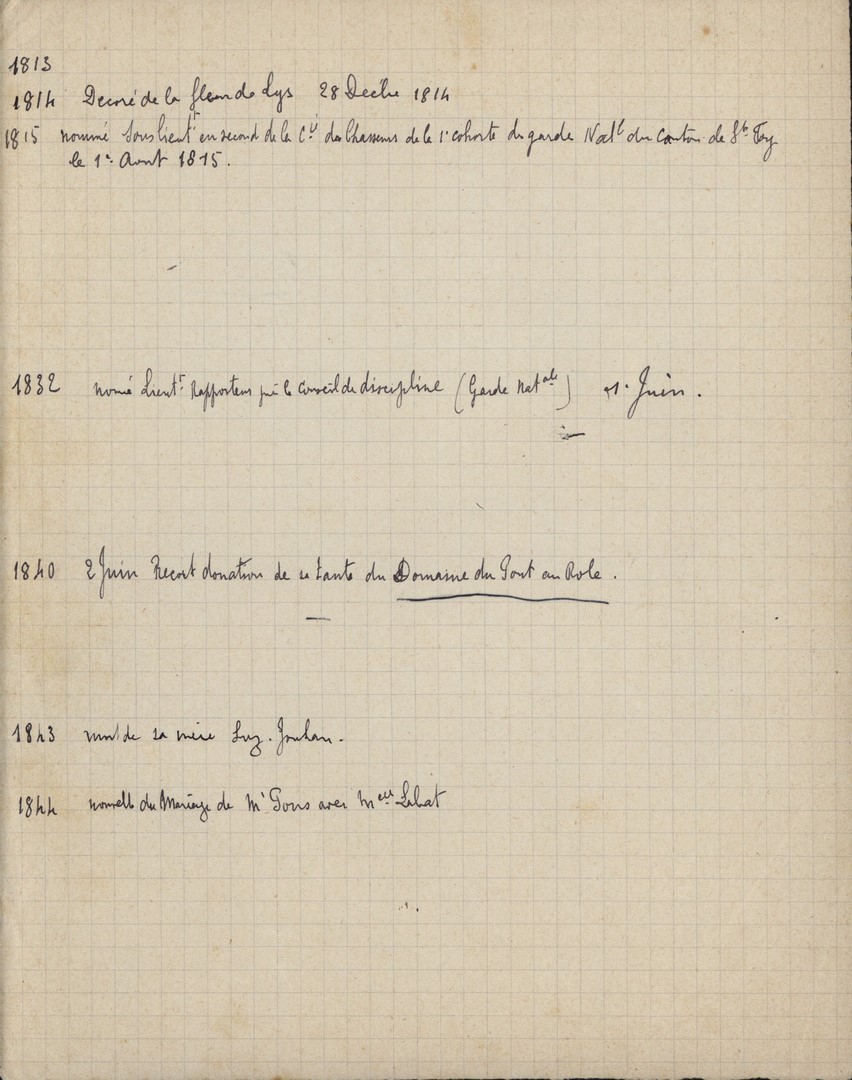 1813
1814 Decoré de la fleur de Lys 28 Decbre 1814
1815 nommé Sous lieutt en second de la Cie des Chasseurs de la 1e cohorte de garde Natle du canton de Ste Foy
le 1er Aout 1815.
1832 nomé Lieutt Rapporteur près le conseil de discipline (Garde Natale) 1r Juin.
1840 2 Juin Recoit donation de sa tante du Domaine du Pont au Role.
1843 mort de sa mère Suz. Jouhan.
1844 nouvelle du Mariage de Mr Pons avec Melle Labat